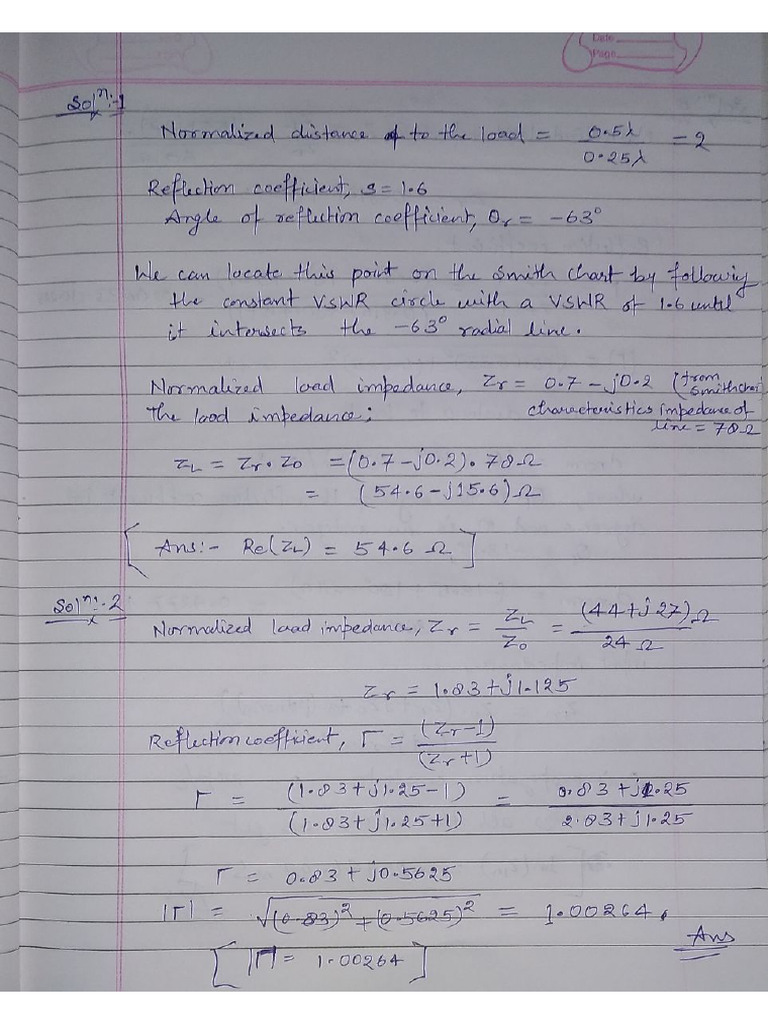 Date
Page
Solⁿ:-1
Normalized distance of to the load = 0.5λ / 0.25λ = 2
Reflection coefficient, s = 1.6
Angle of reflection coefficient, θr = -63°
We can locate this point on the smith chart by followig
the constant VSWR circle with a VSWR of 1.6 until
it intersects the -63° radial line.
Normalized load impedance, Zr = 0.7 - j0.2 (from Smithchar
The load impedance; characteristics impedance of line = 78Ω
ZL = Zr · Z0 = (0.7 - j0.2) · 78Ω
= (54.6 - j15.6)Ω
[ Ans:- Re(ZL) = 54.6 Ω ]
Solⁿ:-2
Normalized load impedance, Zr = ZL / Z0 = (44 + j27)Ω / 24 Ω
Zr = 1.83 + j1.125
Reflection coefficient, Γ = (Zr - 1) / (Zr + 1)
Γ = (1.83 + j1.25 - 1) / (1.83 + j1.25 + 1) = 0.83 + j1.25 / 2.83 + j1.25
Γ = 0.83 + j0.5625
|Γ| = √(0.83)² + (0.5625)² = 1.00264,
Ans
[ |Γ| = 1.00264 ]